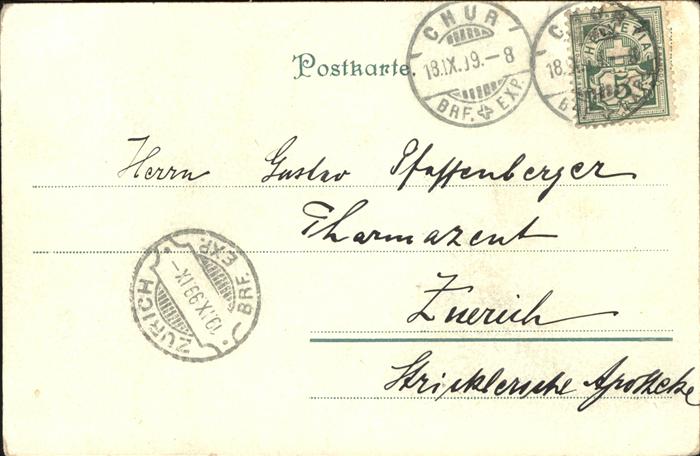 CHUR
18.IX.99.–8
BRF. EXP.
CHUR
18.
HELVETIA
5
Postkarte.
Herrn Gustav Pfaffenberger
Pharmazent
Zuerich
Stricklersche Apotheke
ZÜRICH
19.IX.99.IX–
BRF. EXP.